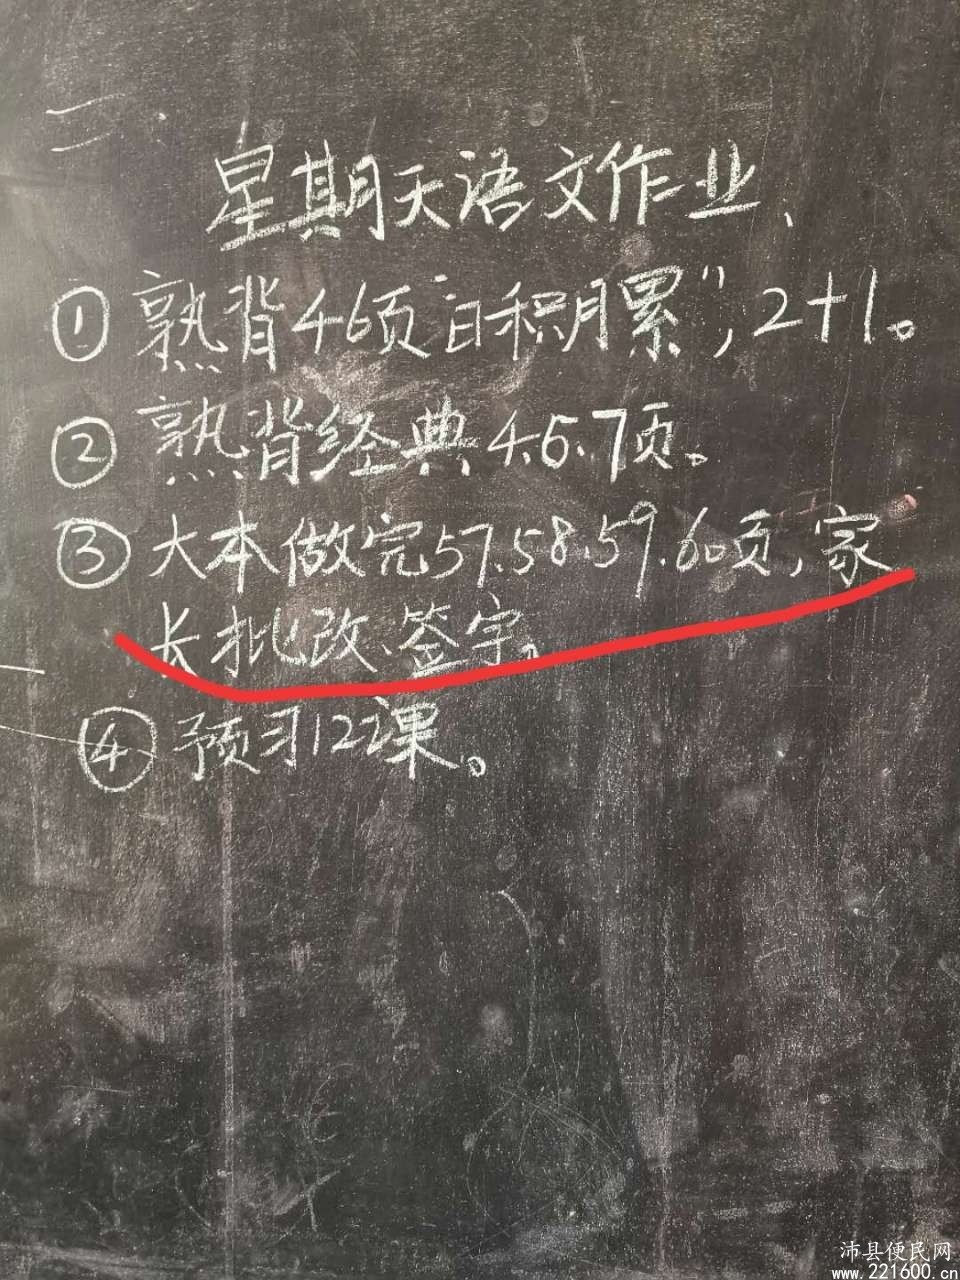 二.
星期天语文作业、
①熟背46页“日积月累”,2+1。
②熟背经典4.5.7页。
③大本做完57.58.59.60页,家
长批改、签字。
④预习12课。
沛县便民网
www.221600.cn